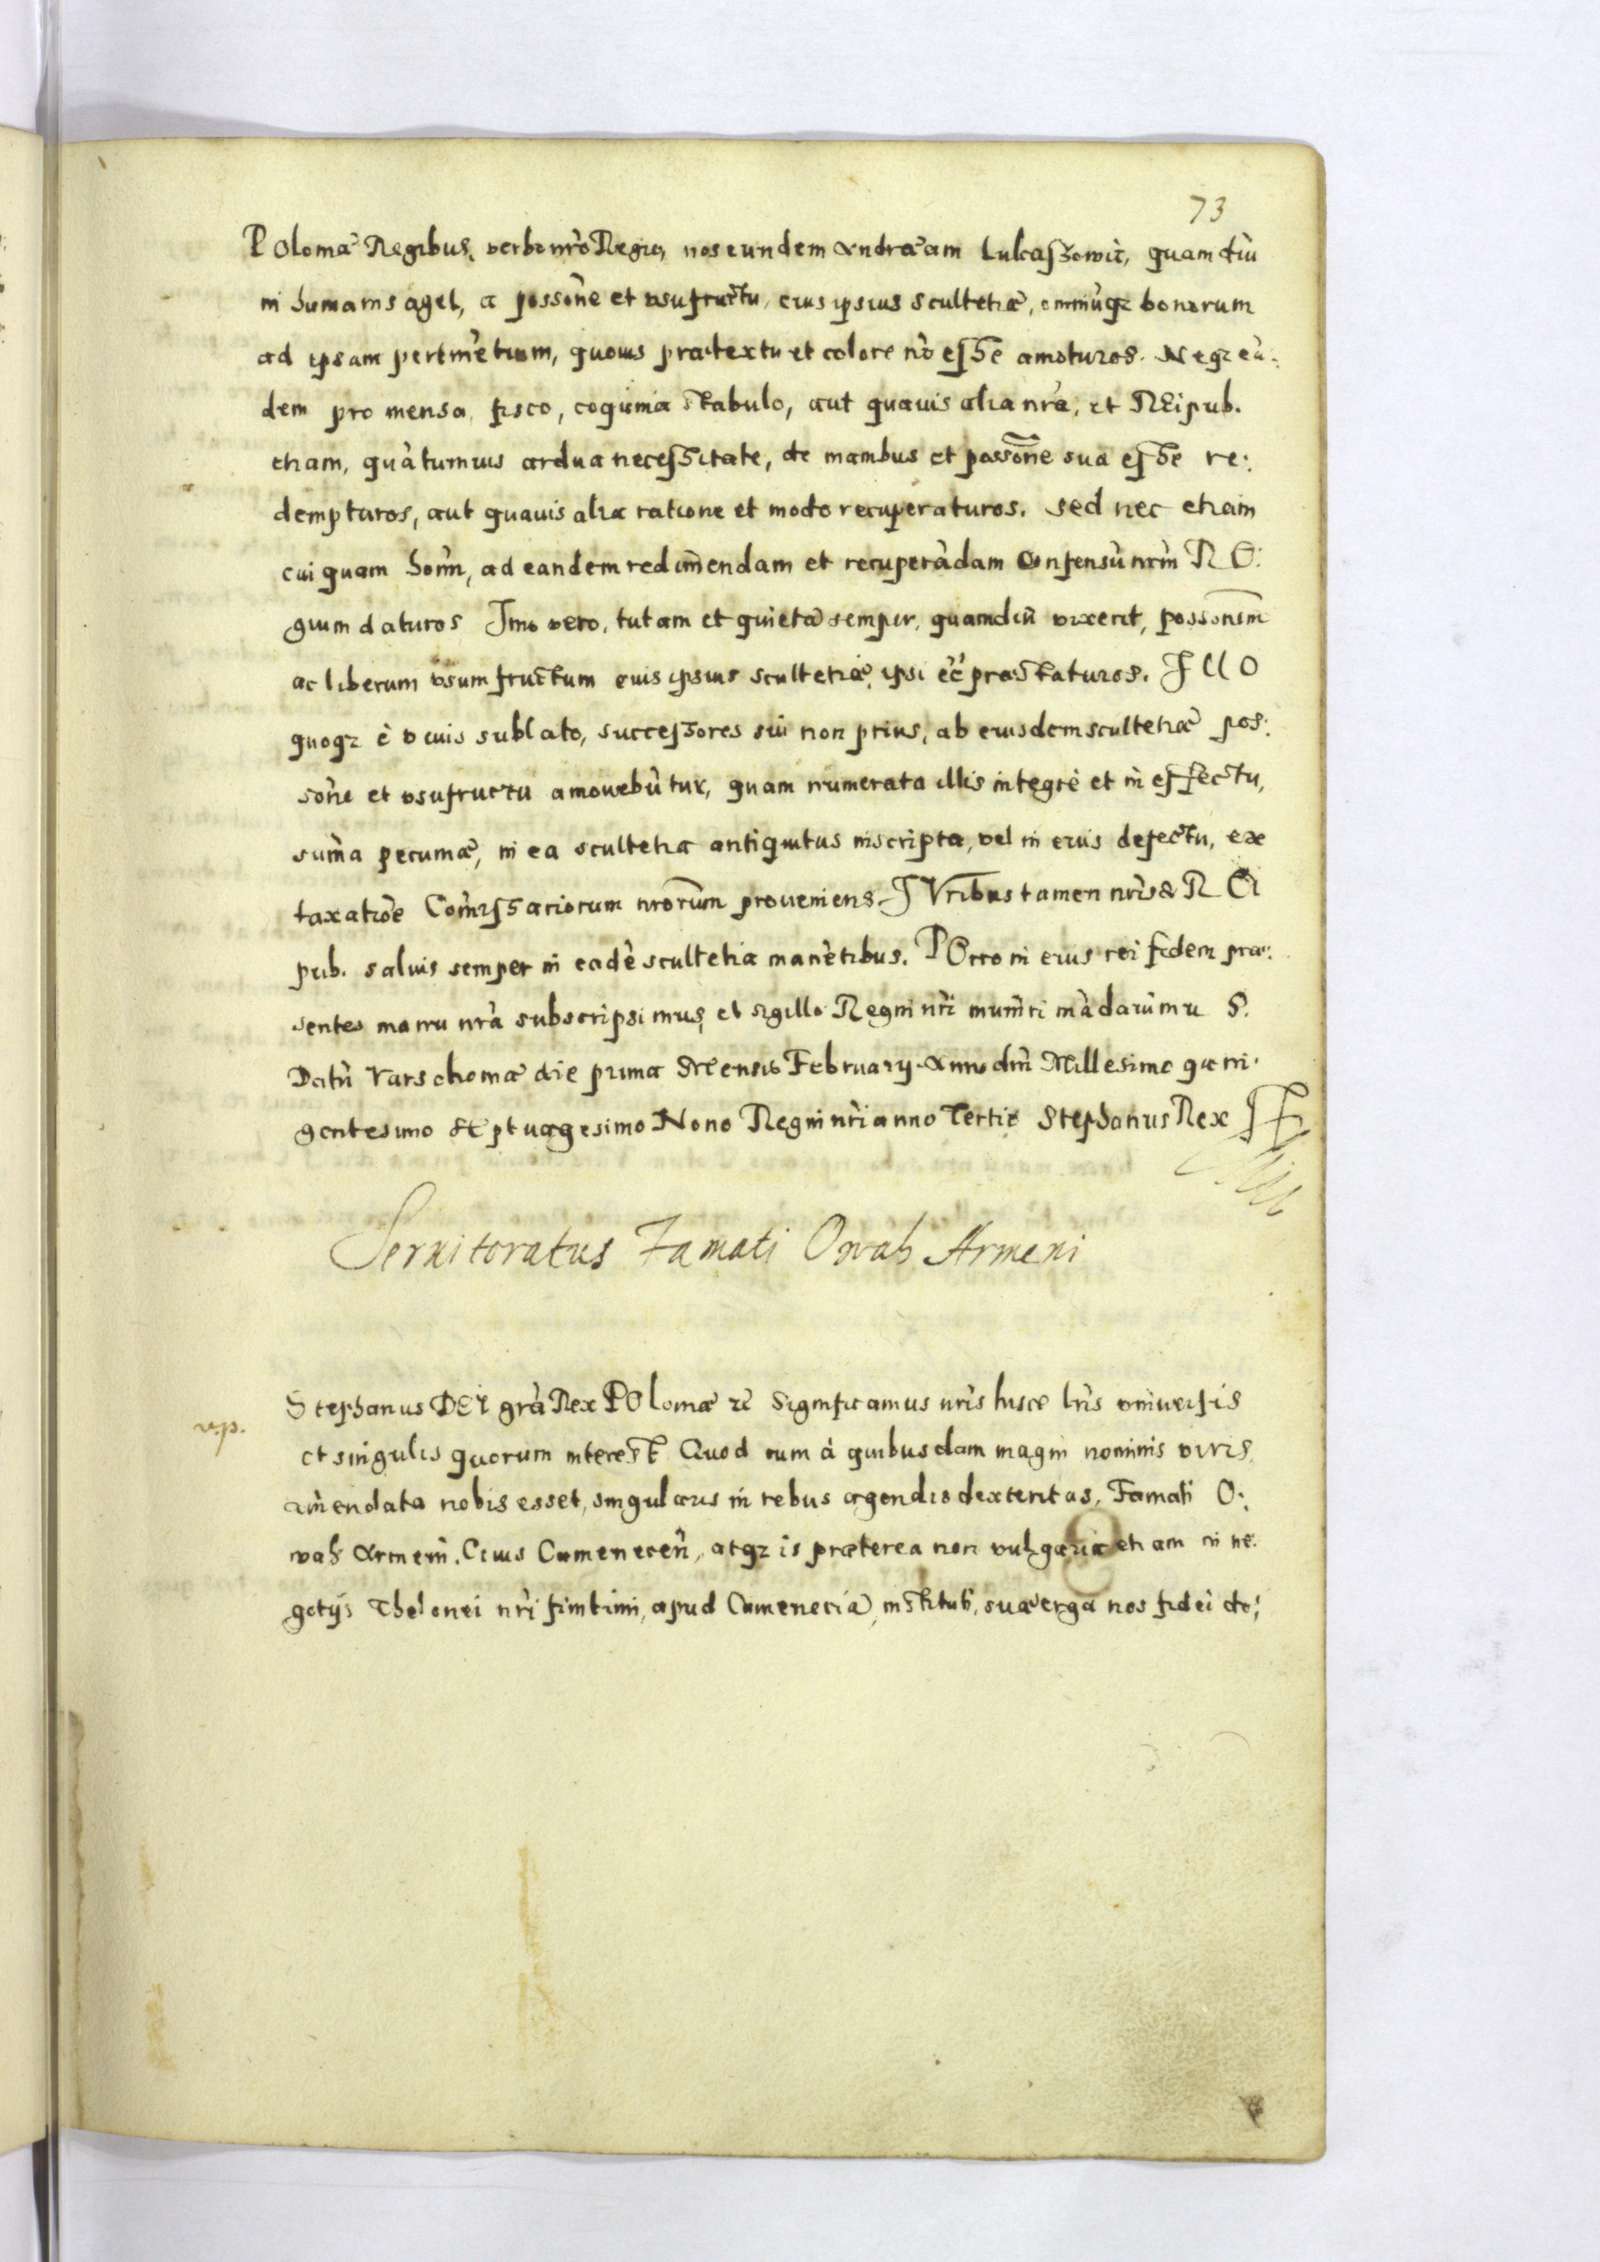 73
Poloniæ Regibus, verbo nr̃o Regio, nos eundem Andræam Lukaszowic, quam diu
in humanis aget, a possõne et vsufructu, eius ipsius scultetiæ, omniũqz bonorum
ad ipsam pertinẽtium, quouis prætextu et colore nõ esse amoturos. Neqz eũ:
dem pro mensa, fisco, coquina stabulo, aut quauis alia nrã, et REipub.
etiam, quãtumuis ardua necessitate, de manibus et possõne sua esse re:
dempturos, aut quauis alia ratione et modo recuperaturos. Sed nec etiam
cuiquam hoĩm, ad eandem redimendam et recuperãdam Consensũ nrm̃ RE:
gium daturos Imo vero, tutam et quietã semper, quamdiu vixerit, possonem̃
ac liberum vsumfructum euis ipsius scultetiæ, ipsi eẽ præstaturos. ILLO
quoqz è viuis sublato, successores sui non prius, ab eiusdem scultetiæ pos:
sõne et vsufructu amouebũtur, quam numerata illis integrè et in effectu,
sum̃a pecuniæ, in ea scultetia antiquitus inscripta, vel in eius defectu, ex
taxatiõe Com̃issariorum nrorũm proueniens. IVribus tamen nrĩs & REI
pub. saluis semper in eadẽ scultetia manẽtibus. POrro in eius rei fidem præ:
sentes manu nrã subscripsimus, et sigillo Regni nrĩ munĩri mãdauimus.
Datũ Varschoviæ die prima Mensis February. Anno dnĩ Millesimo quin:
gentesimo Septuagesimo Nono Regni nrĩ anno Tertio Stephanus Rex
Seruitoratus Famati Owah Armeni
v.p.
Stephanus DEI grã Rex POloniæ &c̃ Significamus nrĩs hisce lrĩs vniuersis
et singulis quorum interest Quod cum à quibusdam magni nominis viris,
com̃endata nobis esset, singularis in rebus agendis dexteritas, Famati O:
wah Armeni. Ciuis Camenecen̂, atqz is præterea non vulgaria etiam in ne:
gotijs Thelonei nrĩ finitimi, apud Cameneciã, instituti, suæ erga nos fidei do: